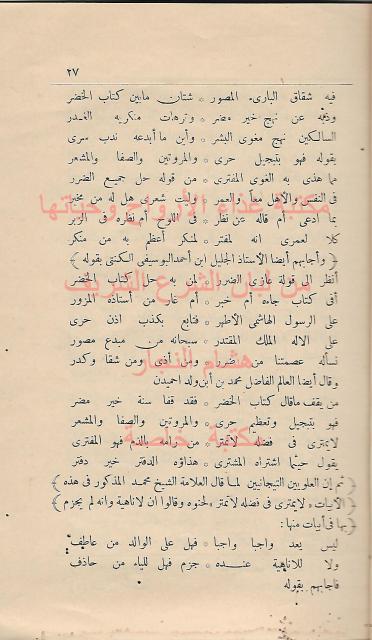 ٢٧
فيه شقاق البارىء المصور * شتان مابين كتاب الخضر
عن نهج خير مضر * وترهات منكريه الغدر
السالكين نهج مغوى البشر * وأين ما أبدعه ندب سرى
بقوله فهو بتبجيل حرى * والمروتين والصفا والمشعر
مما هذى به الغوى المفترى * من قوله حل جميع الضرر
فى النفس والأهل معاً والعمر * وليت شعرى هل له من مخبر
بما ادعى أم قاله عن نظر * فى اللوح أم نظره فى الزبر
كلا لعمرى انه لمفتر * لمنكر أعظم به من منكر
﴿ وأجابهم أيضا الأستاذ الجليل ابن احمد اليوسيفى الكنتى بقوله ﴾
أنظر الى قولة عازى الضرر * لمن به حل كتاب الخضر
أفى كتاب جاءه أم خبر * أم غار من أستاذه المزور
على الرسول الهاشمى الأطهر * فتابع بكذب اذن حرى
على الاله الملك المقتدر * سبحانه من مبدع مصور
نسأله عصمتنا من ضرر * ومن أذى ومن شقا وكدر
وقال أيضا العالم الفاضل محمد بن اْبن ولد احميدن
من يقف ماقال كتاب الخضر * فقد قفا سنة خير مضر
فهو بتبجيل وتعظيم حرى * والمروتين والصفا والمشعر
لايمترى فى فضله لاتمتر * من رامه بالذم فهو المفترى
يقول حيثما اشتراه المشترى * هذاؤه الدفتر خير دفتر
﴿ ثم إن العلويين التيجانيين لما قال العلامة الشيخ محمد المذكور فى هذه ﴾
﴿ الأبيات ، لايمترى فى فضله لاتمتر ، لحنوه وقالوا ان لاناهية وانه لم يجزم ﴾
﴿ بها فى أبيات منها :
ليس يعد واجبا واجبا * فهل على الوالد من عاطف
ولا للاناهية عنده * جزم فهل للياء من حاذف
فاجابهم بقوله
مكتبة غذاء الأرواح وحياتها
من لباب الشرع الشريف
هشام النجار
مكتبة خاصة